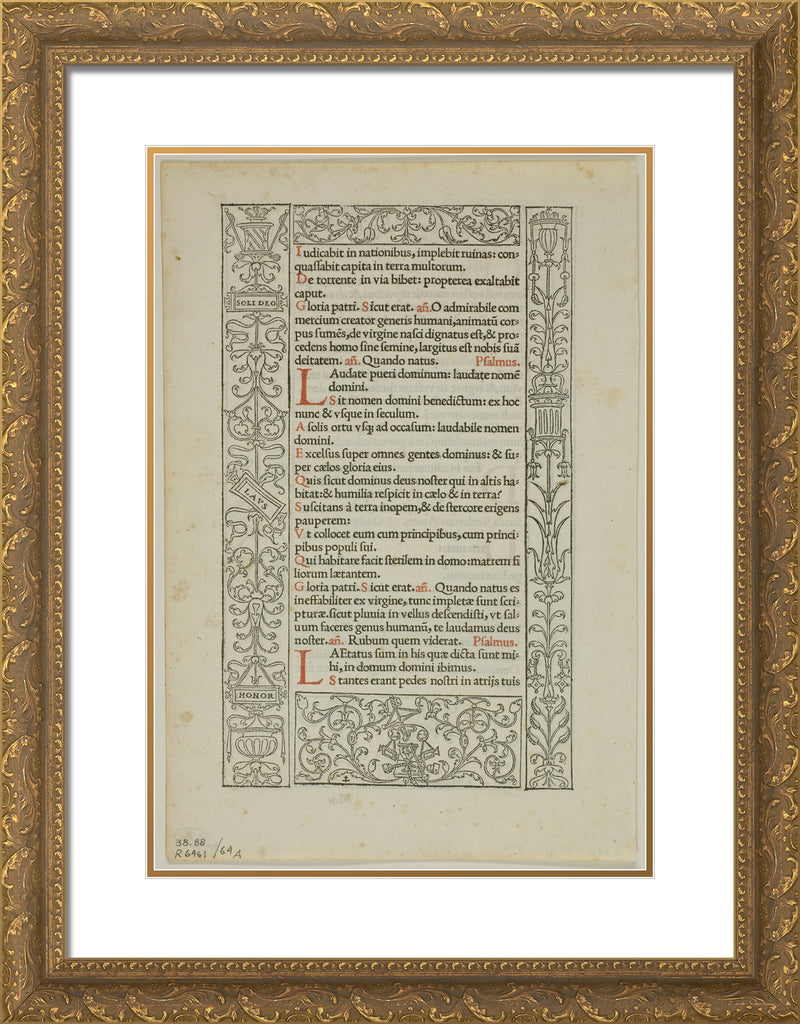 Iudicabit in nationibus, implebit ruinas: con-
quaſſabit capita in terra multorum.
De torrente in via bibet: propterea exaltabit
caput.
Gloria patri. Sicut erat. añ. O admirabile com
mercium creator generis humani, animatū cor-
pus sumēs, de virgine naſci dignatus eſt, & pro-
cedens homo ſine ſemine, largitus eſt nobis ſuā
deitatem. añ. Quando natus. Pſalmus.
LAudate pueri dominum: laudate nomē
domini.
Sit nomen domini benedictum: ex hoc
nunc & vſque in ſeculum.
A ſolis ortu vſq; ad occaſum: laudabile nomen
domini.
Excelſus ſuper omnes gentes dominus: & ſu-
per cælos gloria eius.
Quis ſicut dominus deus noſter qui in altis ha-
bitat: & humilia reſpicit in cælo & in terra?
Suſcitans à terra inopem, & de ſtercore erigens
pauperem:
Vt collocet eum cum principibus, cum princi-
pibus populi ſui.
Qui habitare facit ſterilem in domo: matrem fi
liorum lætantem.
Gloria patri. Sicut erat. añ. Quando natus es
ineffabiliter ex virgine, tunc impletæ ſunt ſcri-
pturæ. ſicut pluuia in vellus deſcendiſti, vt ſal-
uum faceres genus humanū, te laudamus deus
noſter. añ. Rubum quem viderat. Pſalmus.
LAEtatus ſum in his quæ dicta ſunt mi-
hi, in domum domini ibimus.
Stantes erant pedes noſtri in atrijs tuis
SOLI DEO
LAVS
HONOR
38.88
R6461 /64A